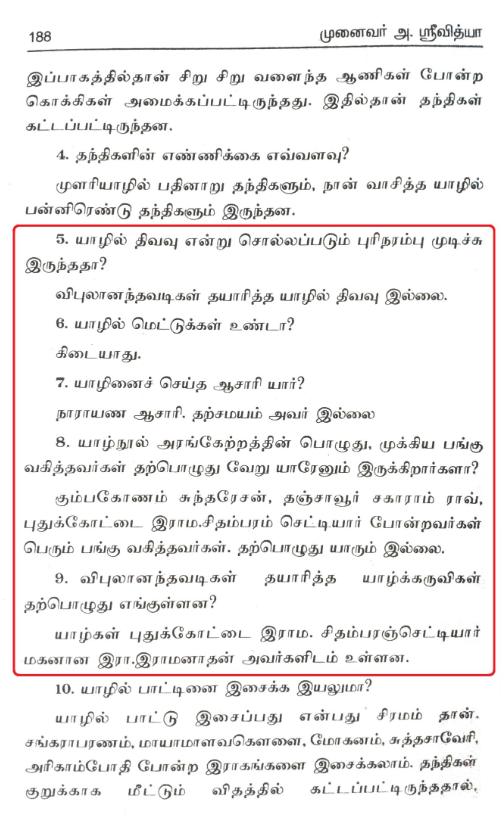 188
முனைவர் அ. ஸ்ரீவித்யா
இப்பாகத்தில்தான் சிறு சிறு வளைந்த ஆணிகள் போன்ற
கொக்கிகள் அமைக்கப்பட்டிருந்தது. இதில்தான் தந்திகள்
கட்டப்பட்டிருந்தன.
4. தந்திகளின் எண்ணிக்கை எவ்வளவு?
முளரியாழில் பதினாறு தந்திகளும், நான் வாசித்த யாழில்
பன்னிரெண்டு தந்திகளும் இருந்தன.
5. யாழில் திவவு என்று சொல்லப்படும் புரிநரம்பு முடிச்சு
இருந்ததா?
விபுலானந்தவடிகள் தயாரித்த யாழில் திவவு இல்லை.
6. யாழில் மெட்டுக்கள் உண்டா?
கிடையாது.
7. யாழினைச் செய்த ஆசாரி யார்?
நாராயண ஆசாரி. தற்சமயம் அவர் இல்லை
8. யாழ்நூல் அரங்கேற்றத்தின் பொழுது, முக்கிய பங்கு
வகித்தவர்கள் தற்பொழுது வேறு யாரேனும் இருக்கிறார்களா?
கும்பகோணம் சுந்தரேசன், தஞ்சாவூர் சகாராம் ராவ்,
புதுக்கோட்டை இராம.சிதம்பரம் செட்டியார் போன்றவர்கள்
பெரும் பங்கு வகித்தவர்கள். தற்பொழுது யாரும் இல்லை.
9. விபுலானந்தவடிகள் தயாரித்த யாழ்க்கருவிகள்
தற்பொழுது எங்குள்ளன?
யாழ்கள் புதுக்கோட்டை இராம. சிதம்பரஞ்செட்டியார்
மகனான இரா.இராமனாதன் அவர்களிடம் உள்ளன.
10. யாழில் பாட்டினை இசைக்க இயலுமா?
யாழில் பாட்டு இசைப்பது என்பது சிரமம் தான்.
சங்கராபரணம், மாயாமாளவகௌளை, மோகனம், சுத்தசாவேரி,
அரிகாம்போதி போன்ற இராகங்களை இசைக்கலாம். தந்திகள்
குறுக்காக மீட்டும் விதத்தில் கட்டப்பட்டிருந்ததால்,